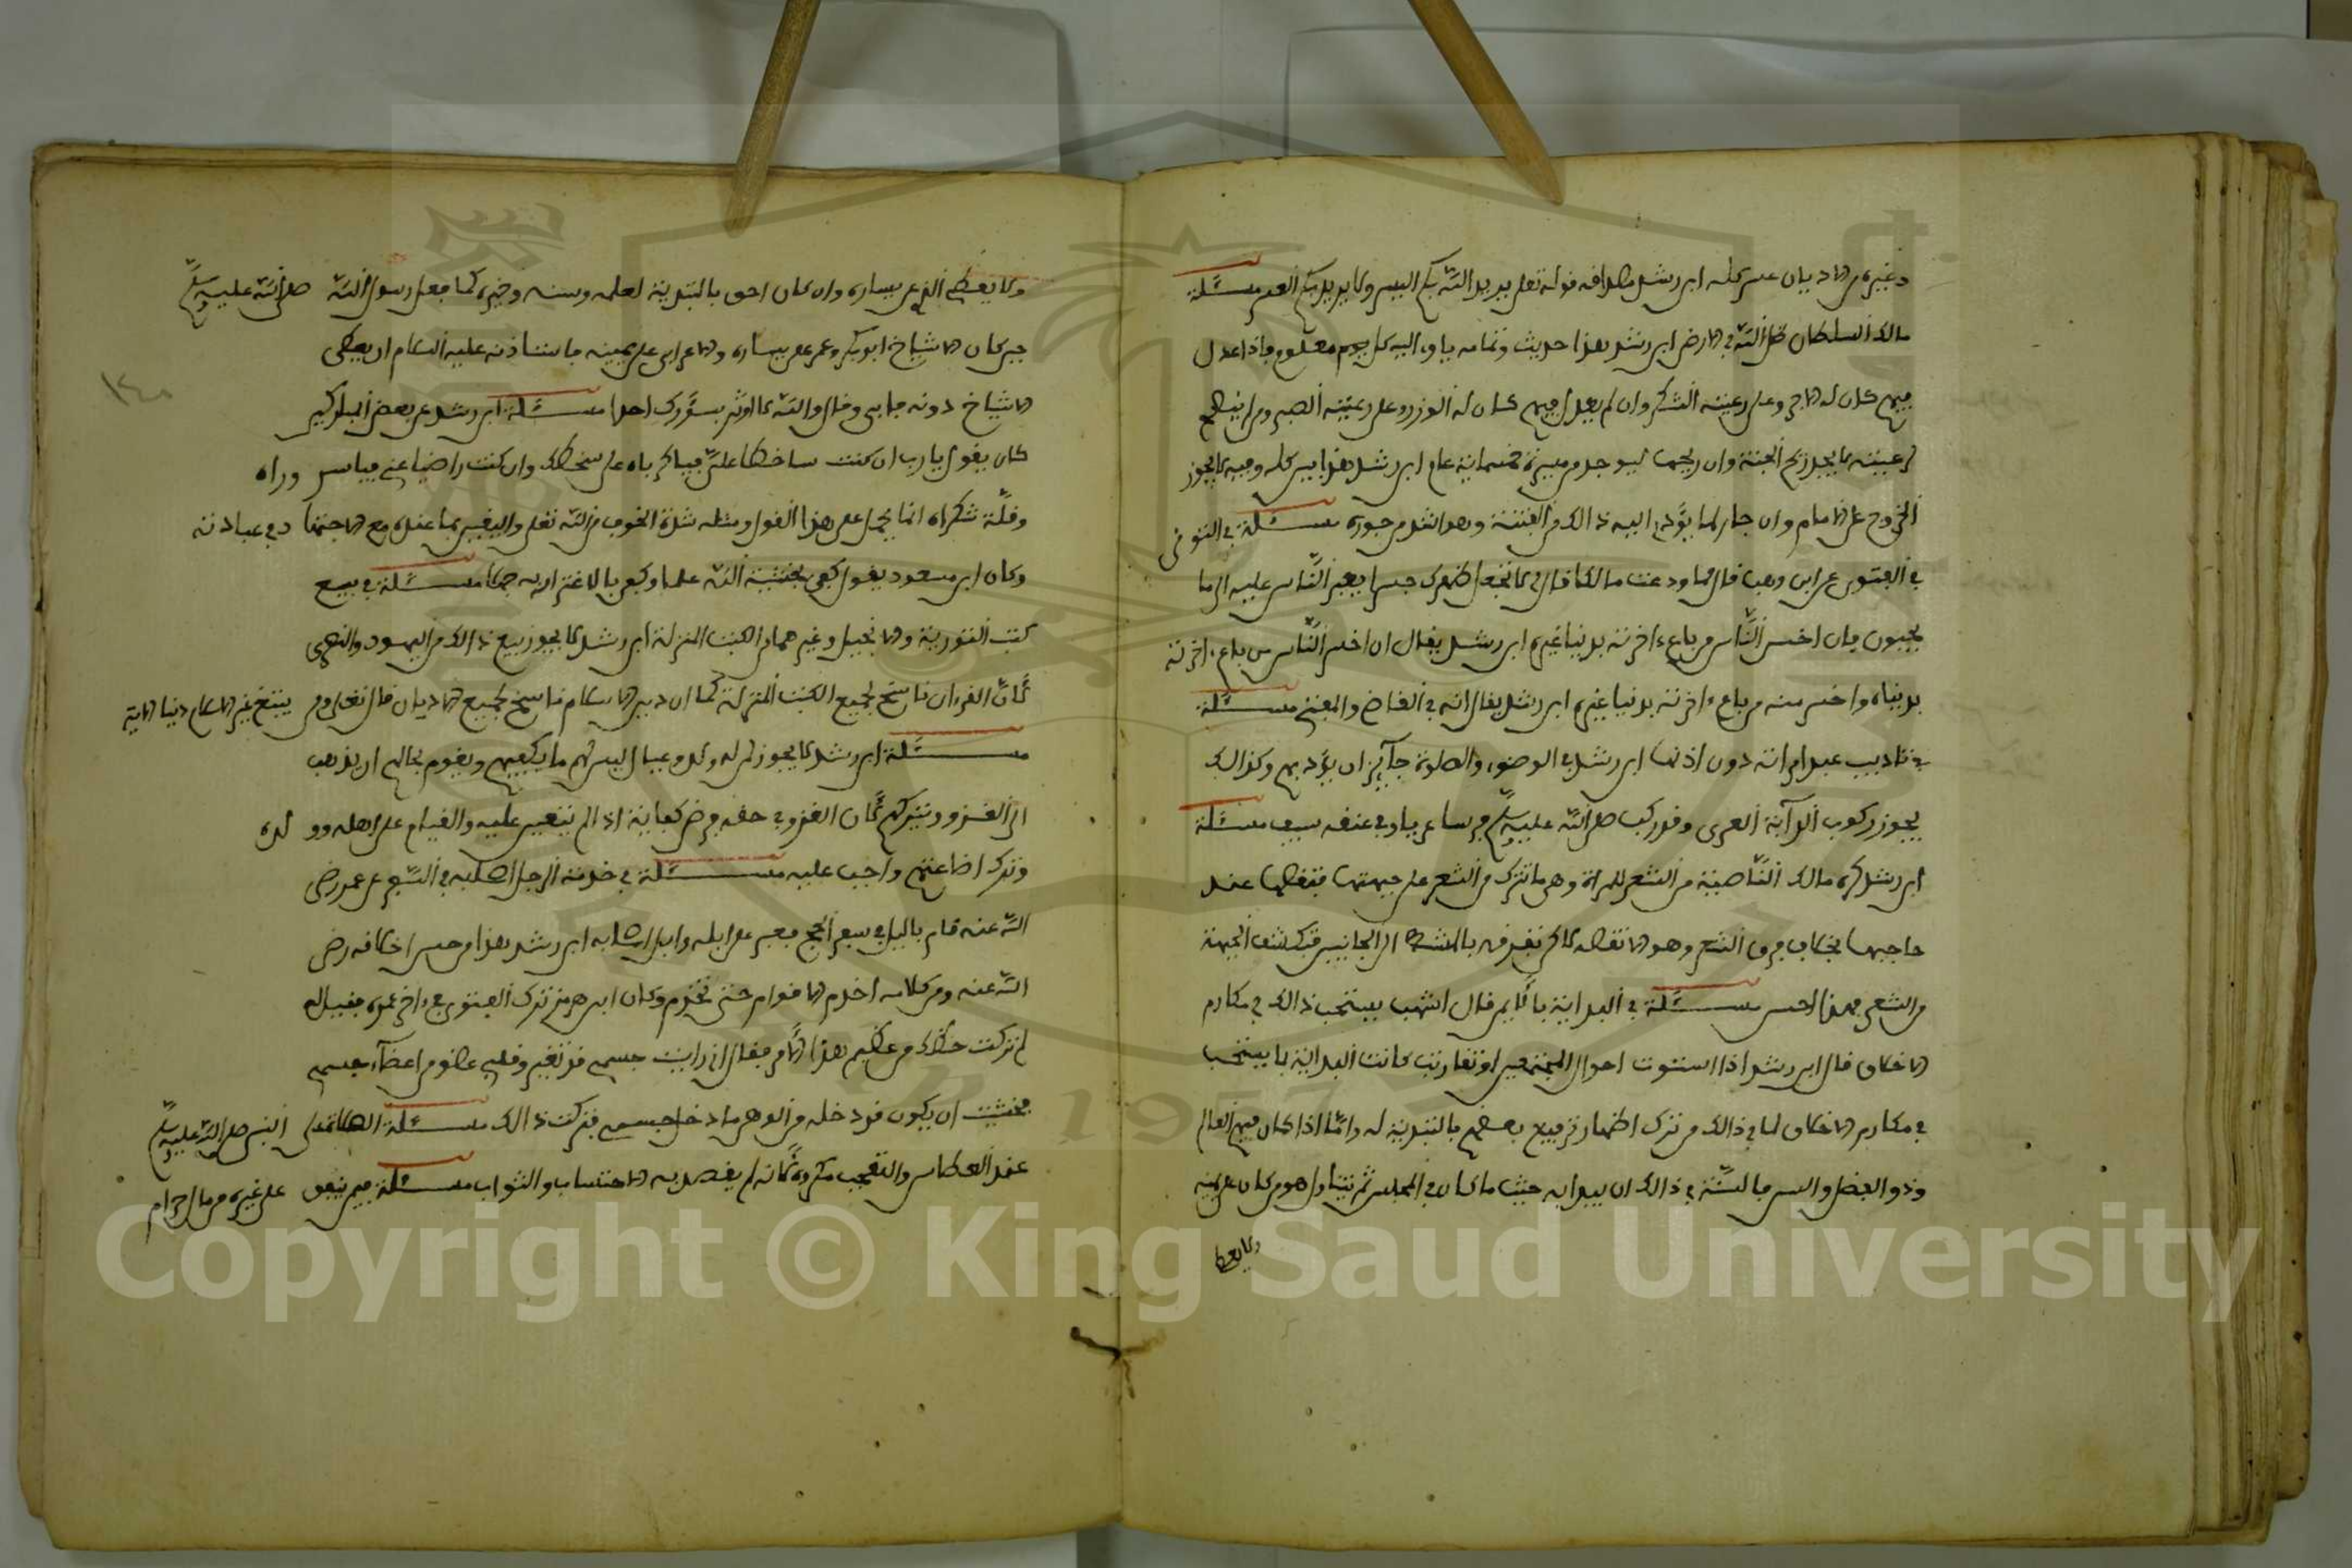 وغيره من الاديان عسر كله ابن رشد مصداقه قوله تعلى يريد الله بكم اليسر ولا يريد بكم العسر مسئلة
مالك السلطان ظل الله في الارض ابن رشد هذا حديث وتمامه ياوي اليه كل مظلوم فاذا عدل
فيهم كان له الاجر وعلى رعيته الشكر وان لم يعدل فيهم كان له الوزر وعلى رعيته الصبر ومن لم ينصح
لرعيته لا يجد ريح الجنة وان ريحها ليوجد من مسيرة خمسمائة عام ابن رشد هذا بين كله وفيه لا يجوز
الخروج على الامام وان جار لما يؤدي اليه ذالك من الفتنة وهي اشد من جوره مسئلة في التوقي
في الفتوى عن ابن وهب قال لما ودعت مالكا قال لي لا تجعل ظهرك جسرا يعبر الناس عليه الى ما
يحبون فان اخسر الناس من باع ءاخرته بدنيا غيره ابن رشد يقال ان اخسر الناس من باع ءاخرته
بدنياه واخسر منه من باع ءاخرته بدنيا غيره ابن رشد يقال انه في القاضي والمفتي مسئلة
في تاديب عبد امراته دون اذنها ابن رشد في الوضوء والصلوة جآئز ان يؤدبهم وكذالك
يجوز ركوب الدآبة العرى وقد ركب صلى الله عليه وسلم فرسا عريا وفي عنقه سيف مسئلة
ابن رشد كره مالك الناصية من الشعر للمراة وهي ما تترك من الشعر على جبهتها فتقطها عند
حاجبها بخلاف فرق الشعر وهو الا تقطه لاكن تفرقه بالمشط الى الجانبين فتكشف الجبهة
من الشعر فهذا احسن مسئلة في البداية بالايمن قال اشهب يستحب ذالك في مكارم
الاخلاق قال ابن رشد اذا استوت احوال المجتمعين او تقاربت كانت البداية باليمين تستحب
في مكارم الاخلاق لما في ذالك من ترك اظهار ترفيع بعضهم بالتبدية له واما اذا كان فيهم العالم
وذو الفضل والسن فالسنة في ذالك ان يبدا به حيث ما كان في المجلس ثم يتناول هو من كان على يمينه
ولا يعطي
ولا يعطي الذي عن يساره وان كان احق بالتبدية لعلمه وسنه وخيره كما فعل رسول الله صلى الله عليه وسلم
حين كان الاشياخ ابو بكر وعمر عن يساره والاعرابي على يمينه فاستاذنه عليه السلام ان يعطي
الاشياخ دونه فابى وقال والله لا اوثر بسؤرك احدا مسئلة ابن رشد عن بعض المباركين
كان يقول يا رب ان كنت ساخطا علي فيا كرباه على سخطك وان كنت راضيا عني فياسروراه
وقلة شكراه انما يحمل على هذا القول ومثله شدة الخوف من الله تعلى واليقين بما عنده مع الاجتهاد في عبادته
وكان ابن مسعود يقول كفى بخشية الله علما وكفى بالاغترار به جهلا مسئلة في بيع
كتب التورية والانجيل وغيرهما من الكتب المنزلة ابن رشد لا يجوز بيع ذالك من اليهود والنصرى
لان القرءان ناسخ لجميع الكتب المنزلة كما ان دين الاسلام ناسخ لجميع الاديان قال تعلى ومن يبتغ غير الاسلام دينا الاية
مسئلة ابن رشد لا يجوز لمن له ولد وعيال ليس لهم ما يكفيهم ويقوم بحالهم ان يذهب
الى الغزو ويتركهم لان الغزو في حقه فرض كفاية اذا لم يتعين عليه والقيام على اهله وولده
وترك اضاعتهم واجب عليه مسئلة في خدمة الرجل اصحابه في السفر عن عمر رضي
الله عنه قام بالليل في سفر الحج فعبى على ابله وابل اصحابه ابن رشد هذا من حسن اخلاقه رضي
الله عنه ومن كلامه اخدم الاقوام حتى تخدم وكان ابن هرمز ترك الفتوى في ءاخر عمره فقيل له
لم تركت حظك من عظيم هذا الامر فقال اني رايت جسمي قد تغير وقلبي عضو من اعضآء جسمي
فخشيت ان يكون قد دخله من الوهن ما دخل جسمي فتركت ذالك مسئلة الصلاة على النبي صلى الله عليه وسلم
عند العطاس والتعجب مكروه لانه لم يقصد به الاحتساب والثواب مسئلة فيمن ينفق على غيره من مال حرام
١٤٠
Copyright © King Saud University
1957